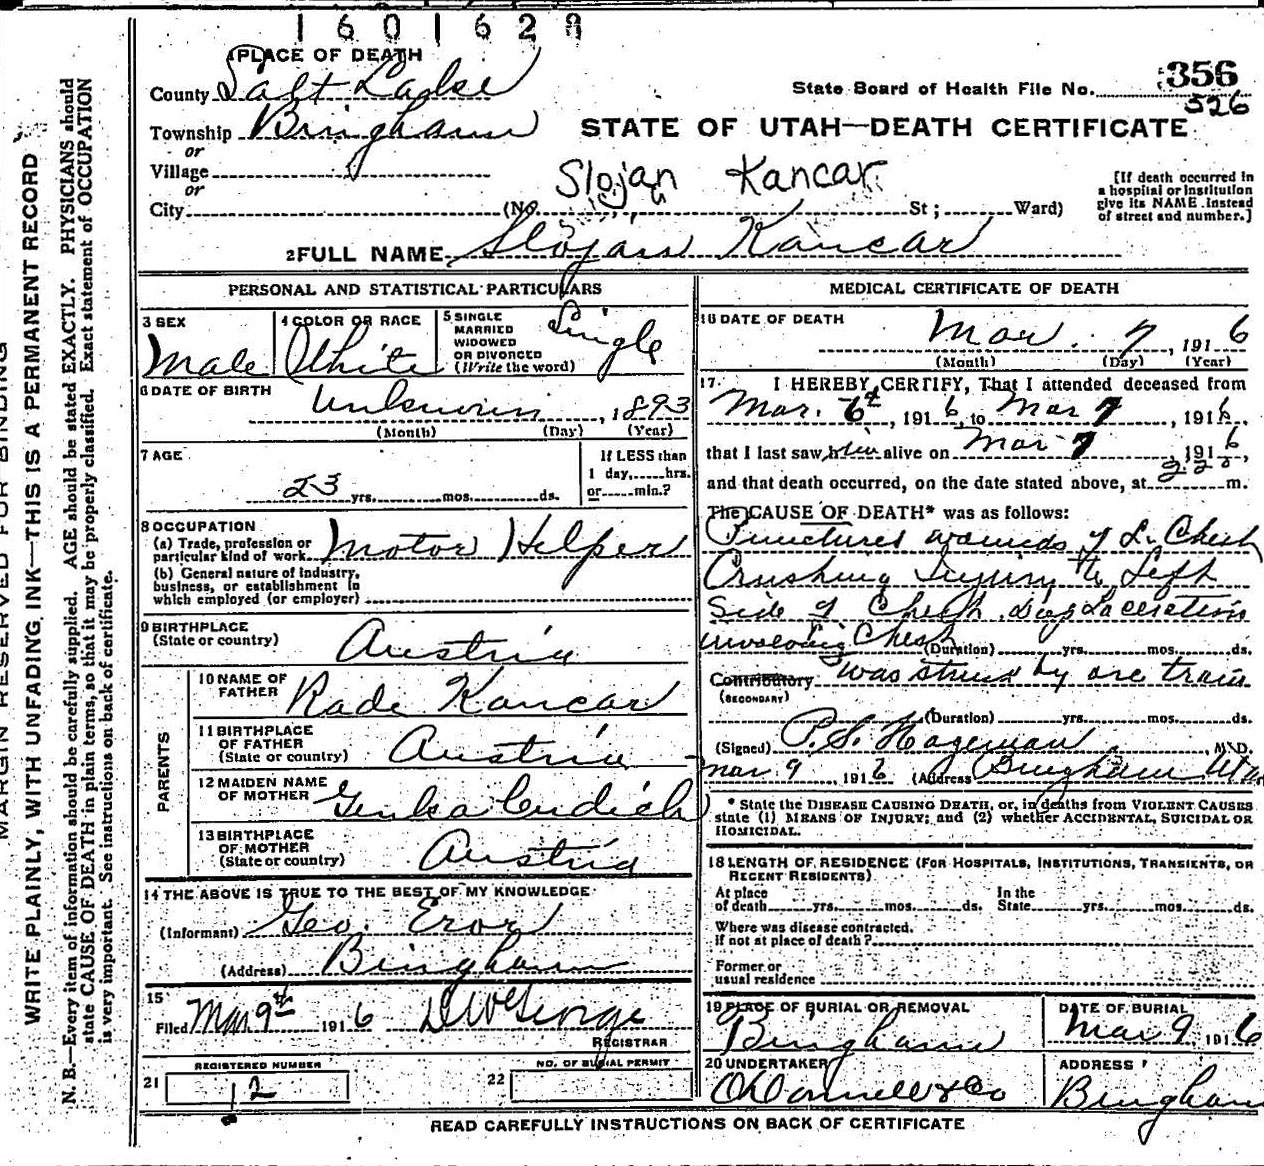 1601628
PLACE OF DEATH
County Salt Lake
State Board of Health File No. 356
526
Township Bingham
STATE OF UTAH—DEATH CERTIFICATE
or
Village
or
Slojan Kancar
[If death occurred in a hospital or institution give its NAME instead of street and number.]
City (No. St; Ward)
2 FULL NAME Slojan Kancar
PERSONAL AND STATISTICAL PARTICULARS
3 SEX
Male
4 COLOR OR RACE
White
5 SINGLE MARRIED WIDOWED OR DIVORCED (Write the word)
Single
6 DATE OF BIRTH
Unknown, 1893
(Month) (Day) (Year)
7 AGE
23 yrs. mos. ds.
If LESS than
1 day, hrs.
or min.?
8 OCCUPATION
(a) Trade, profession or
particular kind of work Motor Helper
(b) General nature of industry,
business, or establishment in
which employed (or employer)
9 BIRTHPLACE
(State or country) Austria
PARENTS
10 NAME OF
FATHER Rade Kancar
11 BIRTHPLACE
OF FATHER
(State or country) Austria
12 MAIDEN NAME
OF MOTHER
13 BIRTHPLACE
OF MOTHER
(State or country) Austria
14 THE ABOVE IS TRUE TO THE BEST OF MY KNOWLEDGE
(Informant) Geo. Eror
(Address) Bingham
15
Filed Mar 9th 1916
REGISTRAR
REGISTERED NUMBER
21 12
NO. OF BURIAL PERMIT
22
MEDICAL CERTIFICATE OF DEATH
16 DATE OF DEATH
Mar. 7, 1916
(Month) (Day) (Year)
17. I HEREBY CERTIFY, That I attended deceased from
Mar. 6th, 1916, to Mar 7, 1916,
that I last saw him alive on Mar 7, 1916,
and that death occurred, on the date stated above, at 2:20 m.
The CAUSE OF DEATH* was as follows:
Punctured wounds of L. Chest
Crushing Injury to Left
Side of Chest. Laceration
involving Chest
(Duration) yrs. mos. ds.
Contributory was struck by ore train
(SECONDARY)
(Duration) yrs. mos. ds.
(Signed) P.S. Hageman, M.D.
Mar 9, 1916 (Address) Bingham Utah
* State the DISEASE CAUSING DEATH, or, in deaths from VIOLENT CAUSES
state (1) MEANS OF INJURY; and (2) whether ACCIDENTAL, SUICIDAL OR
HOMICIDAL.
18 LENGTH OF RESIDENCE (FOR HOSPITALS, INSTITUTIONS, TRANSIENTS, OR
RECENT RESIDENTS)
At place
of death yrs. mos. ds.
In the
State yrs. mos. ds.
Where was disease contracted,
if not at place of death?
Former or
usual residence
19 PLACE OF BURIAL OR REMOVAL
Bingham
DATE OF BURIAL
Mar 9, 1916
20 UNDERTAKER
O'Donnell & Co
ADDRESS
Bingham
READ CAREFULLY INSTRUCTIONS ON BACK OF CERTIFICATE
MARGIN RESERVED FOR BINDING
WRITE PLAINLY, WITH UNFADING INK—THIS IS A PERMANENT RECORD
N. B.—Every item of information should be carefully supplied. AGE should be stated EXACTLY. PHYSICIANS should
state CAUSE OF DEATH in plain terms, so that it may be properly classified. Exact statement of OCCUPATION
is very important. See instructions on back of certificate.